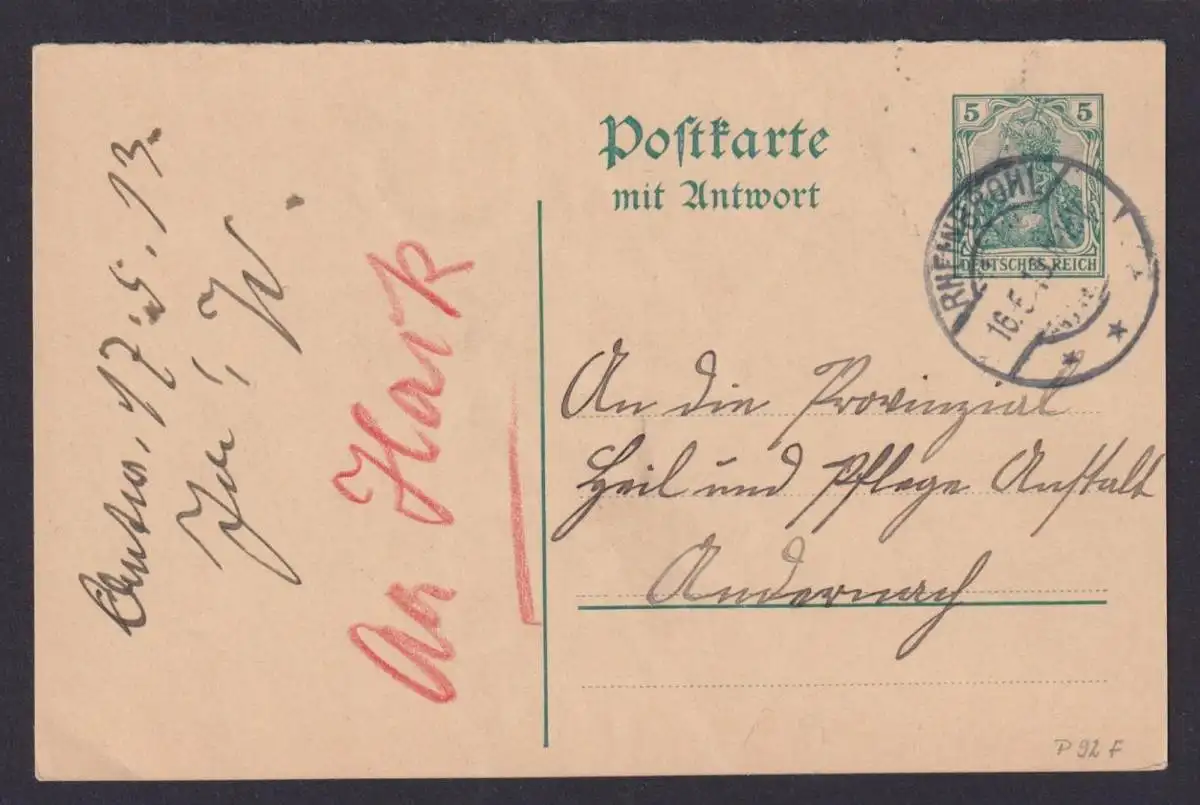 Postkarte
mit Antwort
5 5
DEUTSCHES REICH
RHEINBROHL
16.5.13
An die Provinzial
Heil und Pflege Anstalt
Andernach
An Hark
17.5.13.
P 92 F